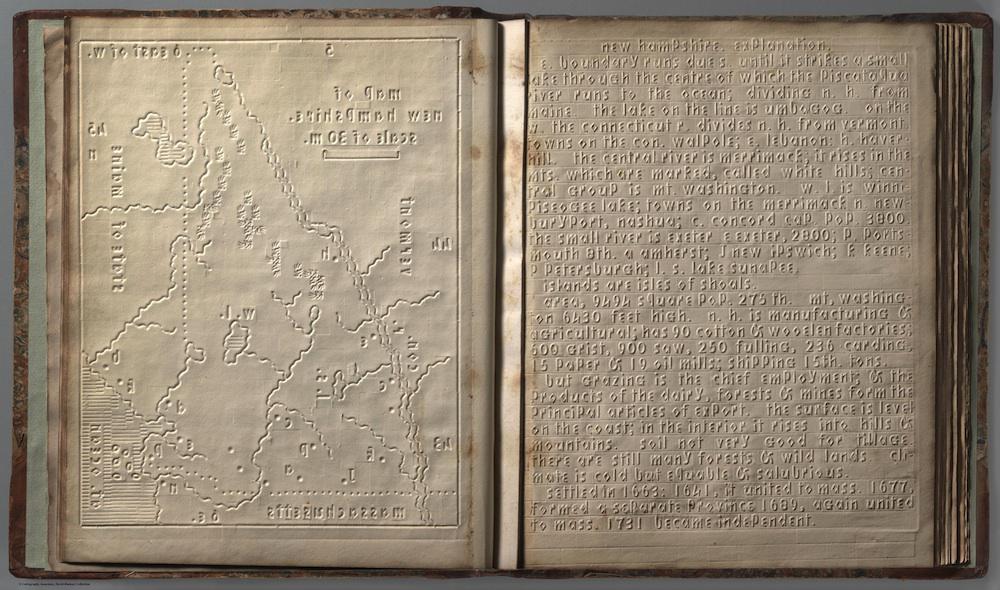 6 east of w.
5
map of
new hampshire.
scale of 30 m.
45
n
state of maine
vermont
44
w. l.
h.
con. r.
43
massachusetts
new hampshire. explanation.
e. boundary runs due s. until it strikes a small
lake through the centre of which the piscataqua
river runs to the ocean; dividing n. h. from
maine. the lake on the line is umbagog. on the
w. the connecticut r. divides n. h. from vermont.
towns on the con. walpole; e. lebanon: h. haver-
hill. the central river is merrimack; it rises in the
mts. which are marked, called white hills; cen-
tral group is mt. washington. w. l. is winni-
piseogee lake; towns on the merrimack n. new-
buryport, nashua; c. concord cap. pop. 3800.
the small river is exeter e exeter, 2800; p. ports-
mouth 8th. a amherst; j new ipswich; k keene;
p petersburgh; l. s. lake sunapee.
islands are isles of shoals.
area, 9494 square pop. 275 th. mt. washing-
ton 6430 feet high. n. h. is manufacturing &
agricultural; has 90 cotton & wooelen factories;
600 grist, 900 saw, 250 fulling, 236 carding,
15 paper & 19 oil mills; shipping 15th. tons.
but grazing is the chief employment; & the
products of the dairy, forests & mines form the
principal articles of export. the surface is level
on the coast; in the interior it rises into hills &
mountains. soil not very good for tillage.
there are still many forests & wild lands cli-
mate is cold but equable & salubrious.
settled in 1663: 1641, it united to mass. 1677,
formed a separate province 1689, again united
to mass. 1731 became independent.